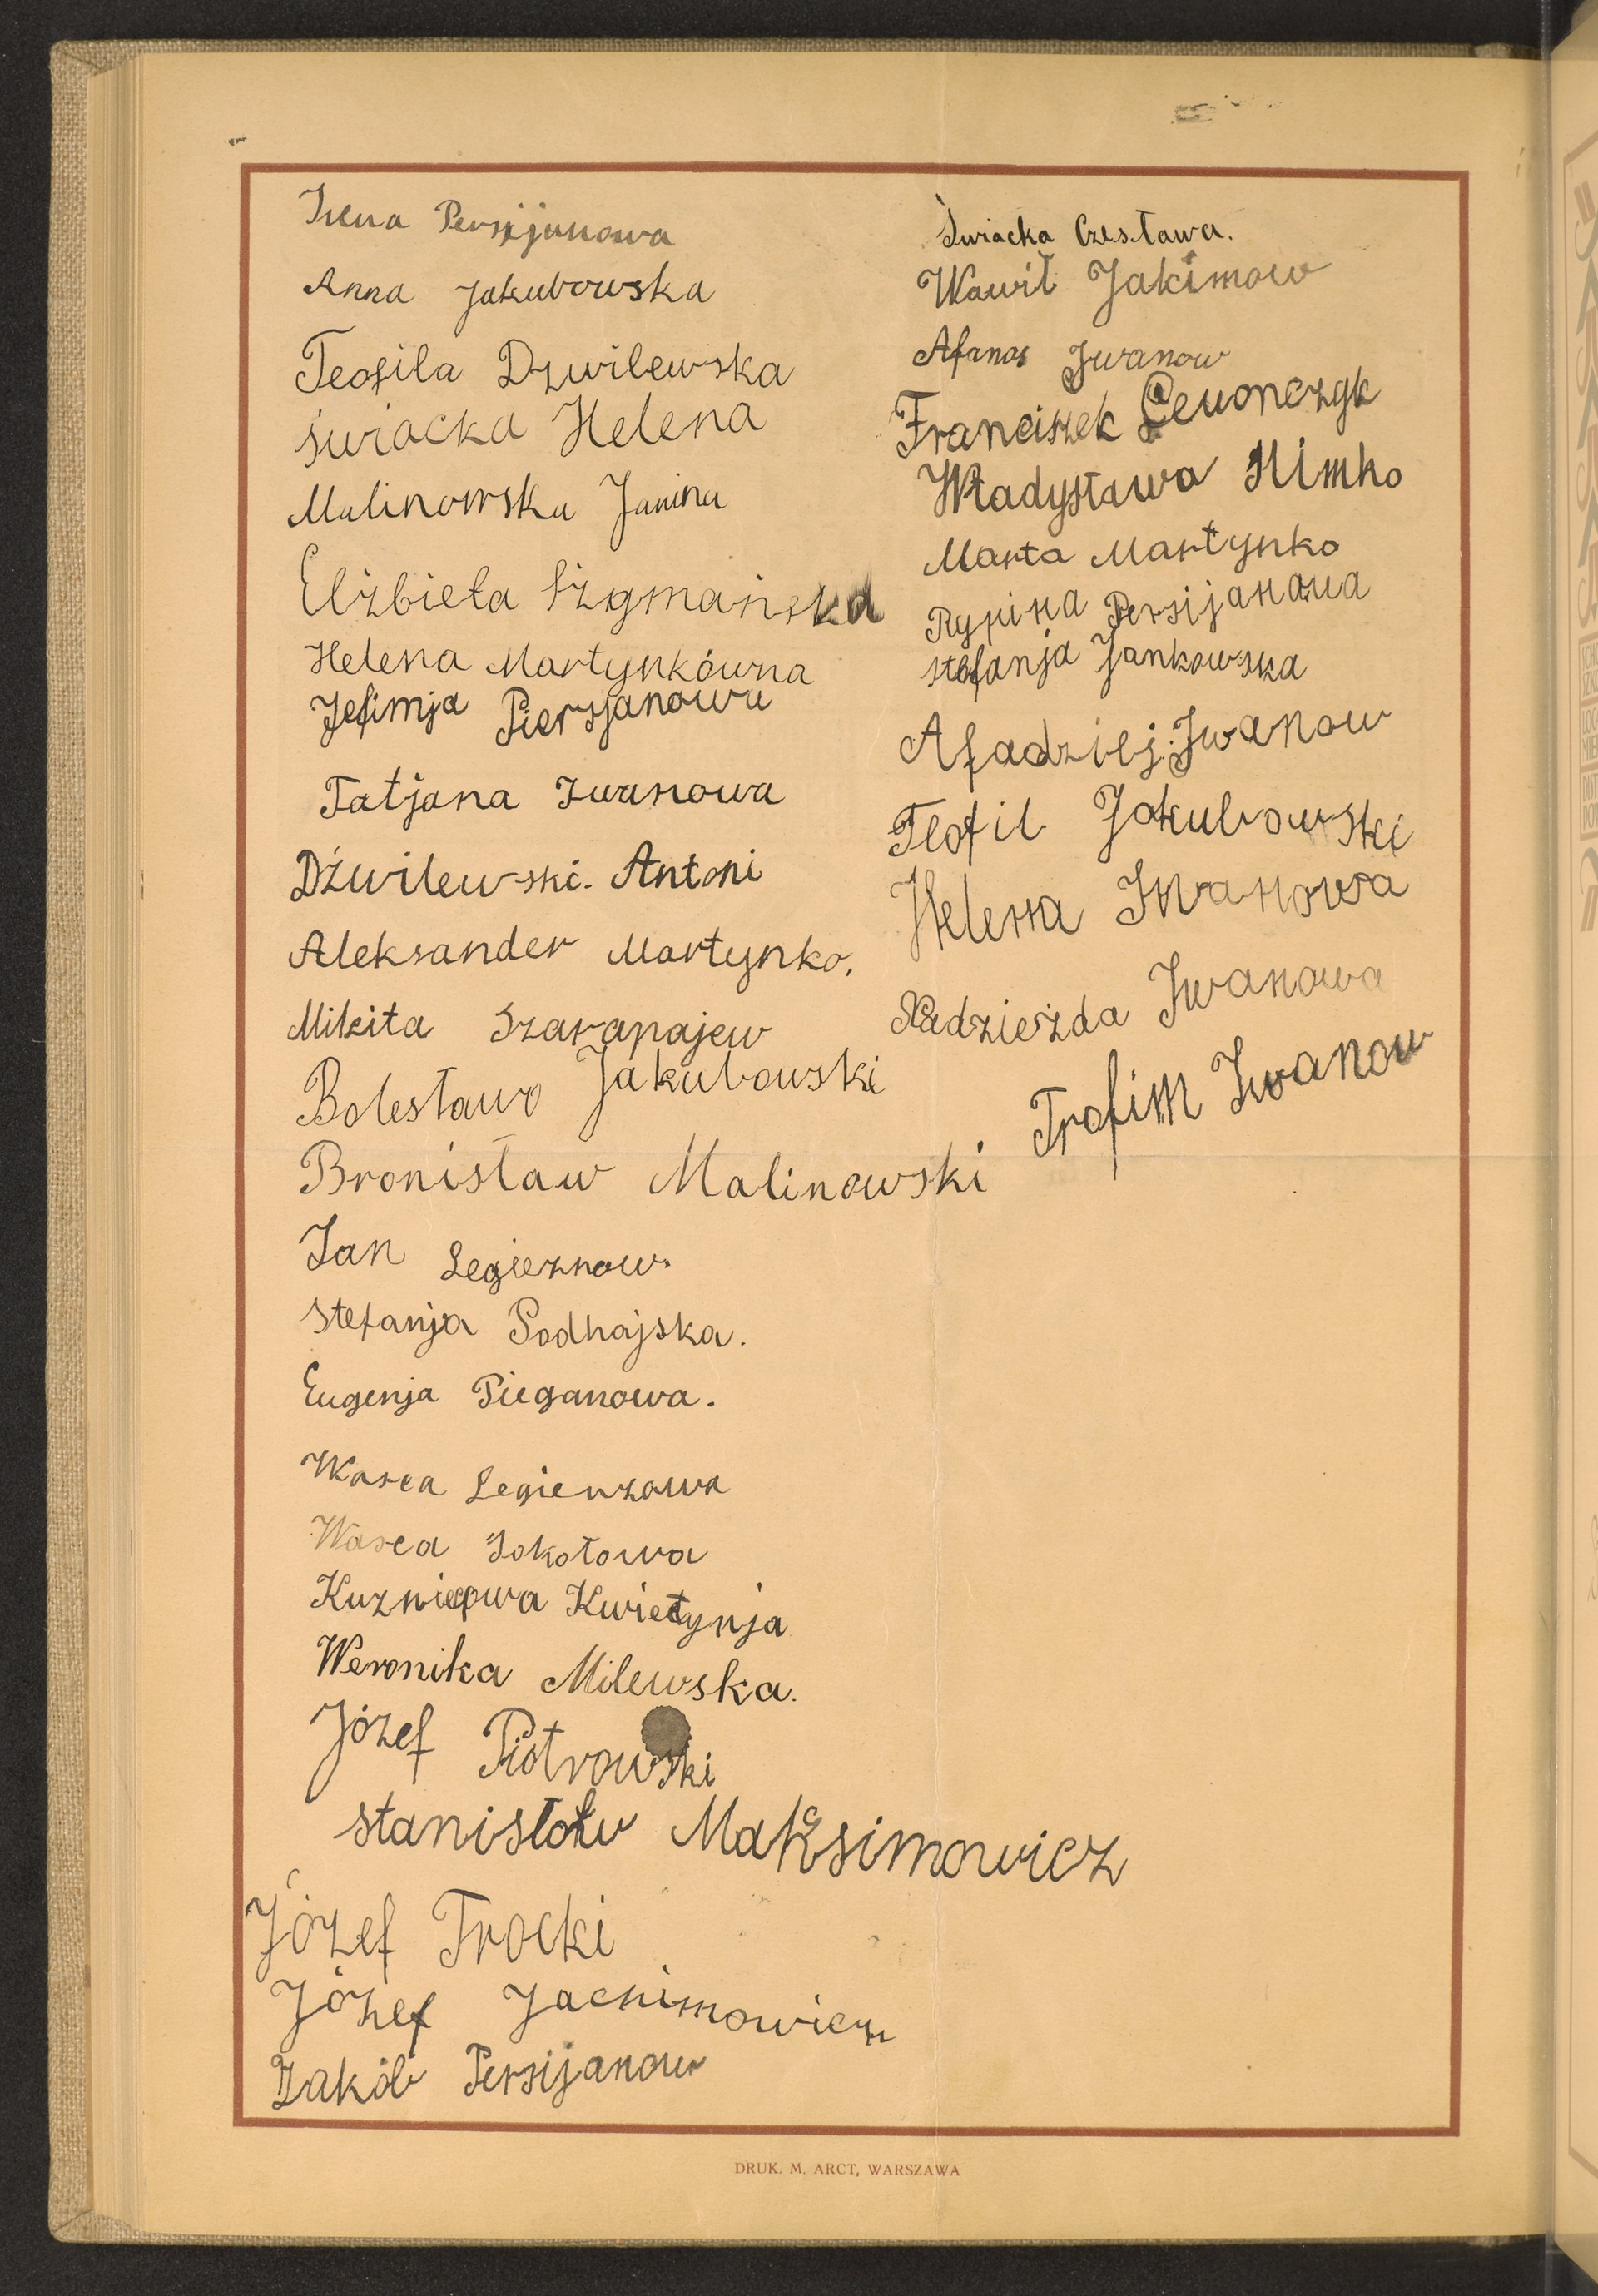 Irena Persijanowa
Anna Jakubowska
Teofila Dzwilewska
Świacka Helena
Malinowska Janina
Elżbieta Szgmańska
Helena Martynkówna
Jefimja Piersjanowa
Tatjana Iwanowa
Dźwilewski. Antoni
Aleksander Martynko.
Mikita Szarapajew
Bolesław Jakubowski
Bronisław Malinowski
Jan Legieznow.
Stefanja Podhajska.
Eugenja Pieganowa.
Wasea Legienzowa
Wasea Sokołowa
Kuzniecowa Kwietynja
Weronika Milewska.
Józef Piotrowski
Stanisław Maksimowicz
Józef Trocki
Józef Jachimowicz
Jakób Persijanow
Świacka Czesława.
Wawił Jakimow
Afanas Iwanow
Franciszek Lewonczyk
Władysława Klimko
Marta Martynko
Rypina Persijanowa
Stefanja Jankowska
Afadziej Iwanow
Teofil Jakubowski
Helena Iwanowa
Nadzieżda Iwanowa
Trofim Iwanow
DRUK. M. ARCT, WARSZAWA